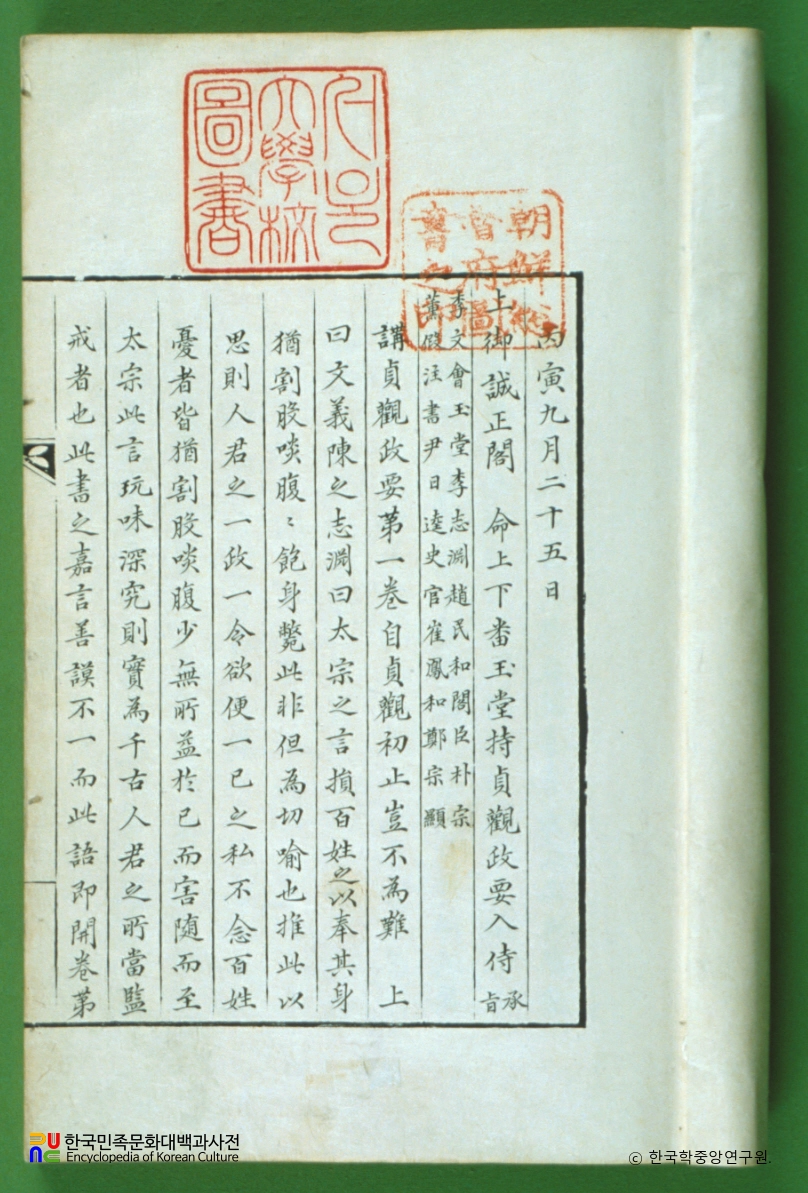 丙寅九月二十五日
上御誠正閣 命上下番玉堂持貞觀政要入侍承旨
李文會玉堂李志淵趙民和閣臣朴宗
薰假注書尹日逵史官崔鳳和鄭宗顯
講貞觀政要第一卷自貞觀初止豈不為難 上
曰文義陳之志淵曰太宗之言損百姓之以奉其身
猶割股啖腹〻飽身斃此非但為切喻也推此以
思則人君之一政一令欲便一己之私不念百姓
憂者皆猶割股啖腹少無所益於己而害隨而至
太宗此言玩味深究則實為千古人君之所當監
戒者也此書之嘉言善謨不一而此語即開卷第
朝鮮總
督府圖
書之印
大學校
圖書
한국민족문화대백과사전
Encyclopedia of Korean Culture
ⓒ 한국학중앙연구원.